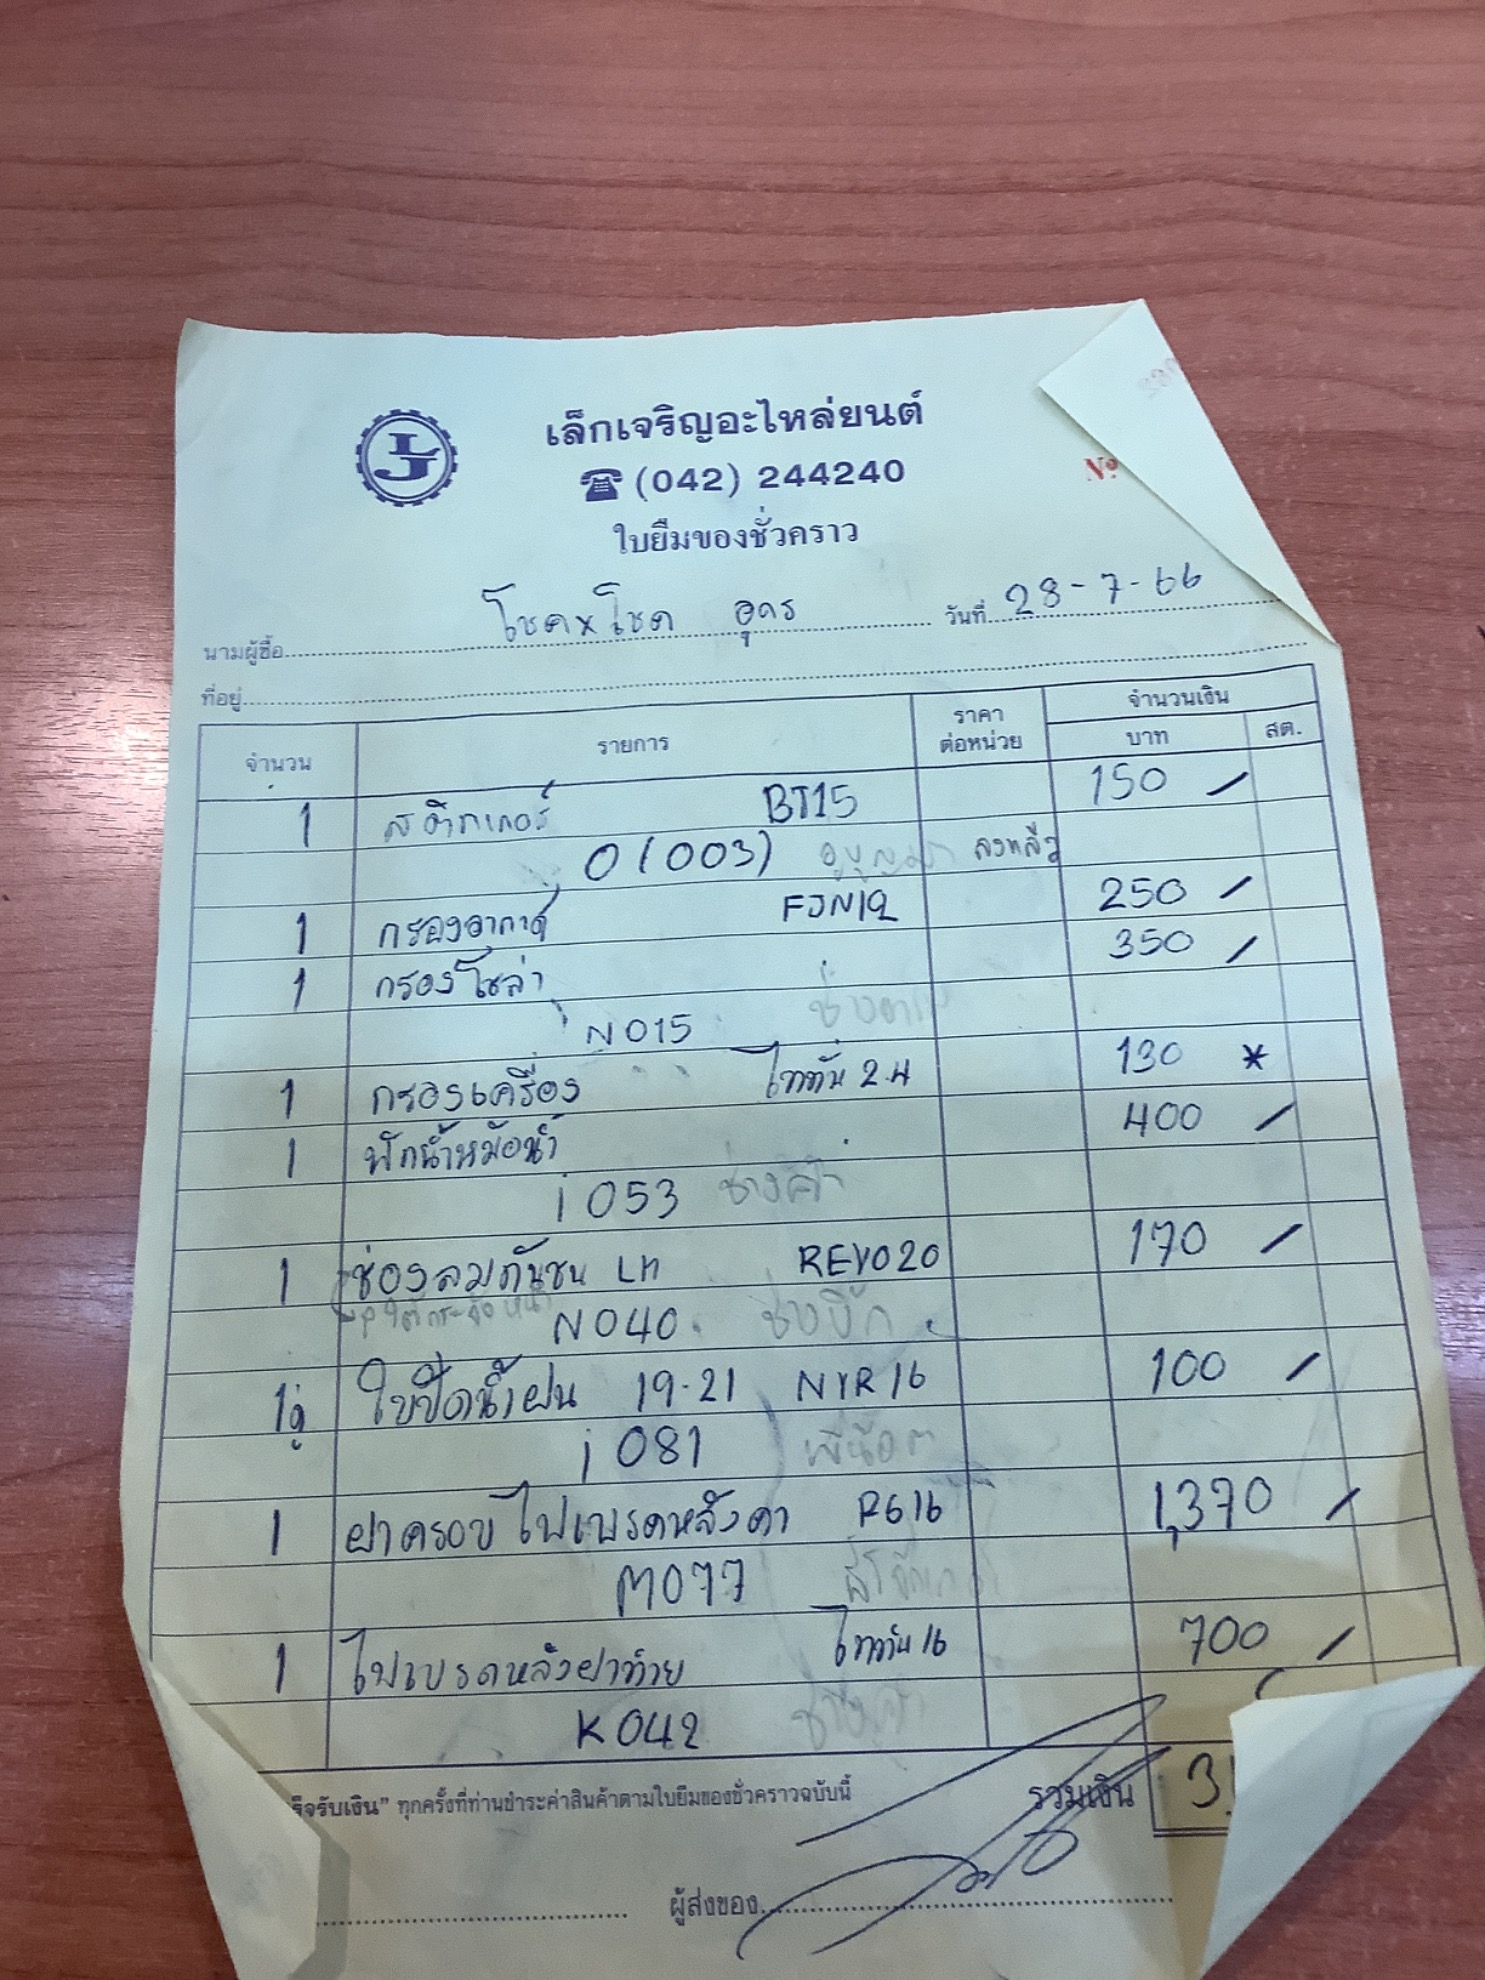 เล็กเจริญอะไหล่ยนต์
☎ (042) 244240
Nº
ใบยืมของชั่วคราว
นามผู้ซื้อ โชคxโชค อุดร วันที่ 28-7-66
ที่อยู่
จำนวน รายการ ราคาต่อหน่วย จำนวนเงิน
บาท สต.
1 สติกเกอร์ BT15 150 /
O(003) ลงหลัง
1 กรองอากาศ FJN12 250 /
1 กรองโซล่า 350 /
N015
1 กรองเครื่อง ไททัน 2.4 130 *
1 พักน้ำหม้อน้ำ 400 /
i 053
1 ช่องลมกันชน LH REVO20 170 /
N040
1คู่ ใบปัดน้ำฝน 19-21 NVR16 100 /
i 081
1 ฝาครอบไฟเบรคหลังคา RG16 1,370 /
M077
1 ไฟเบรคหลังฝาท้าย ไททัน 16 700 /
K042
ร็จรับเงิน" ทุกครั้งที่ท่านชำระค่าสินค้าตามใบยืมของชั่วคราวฉบับนี้ รวมเงิน 3,
ผู้ส่งของ